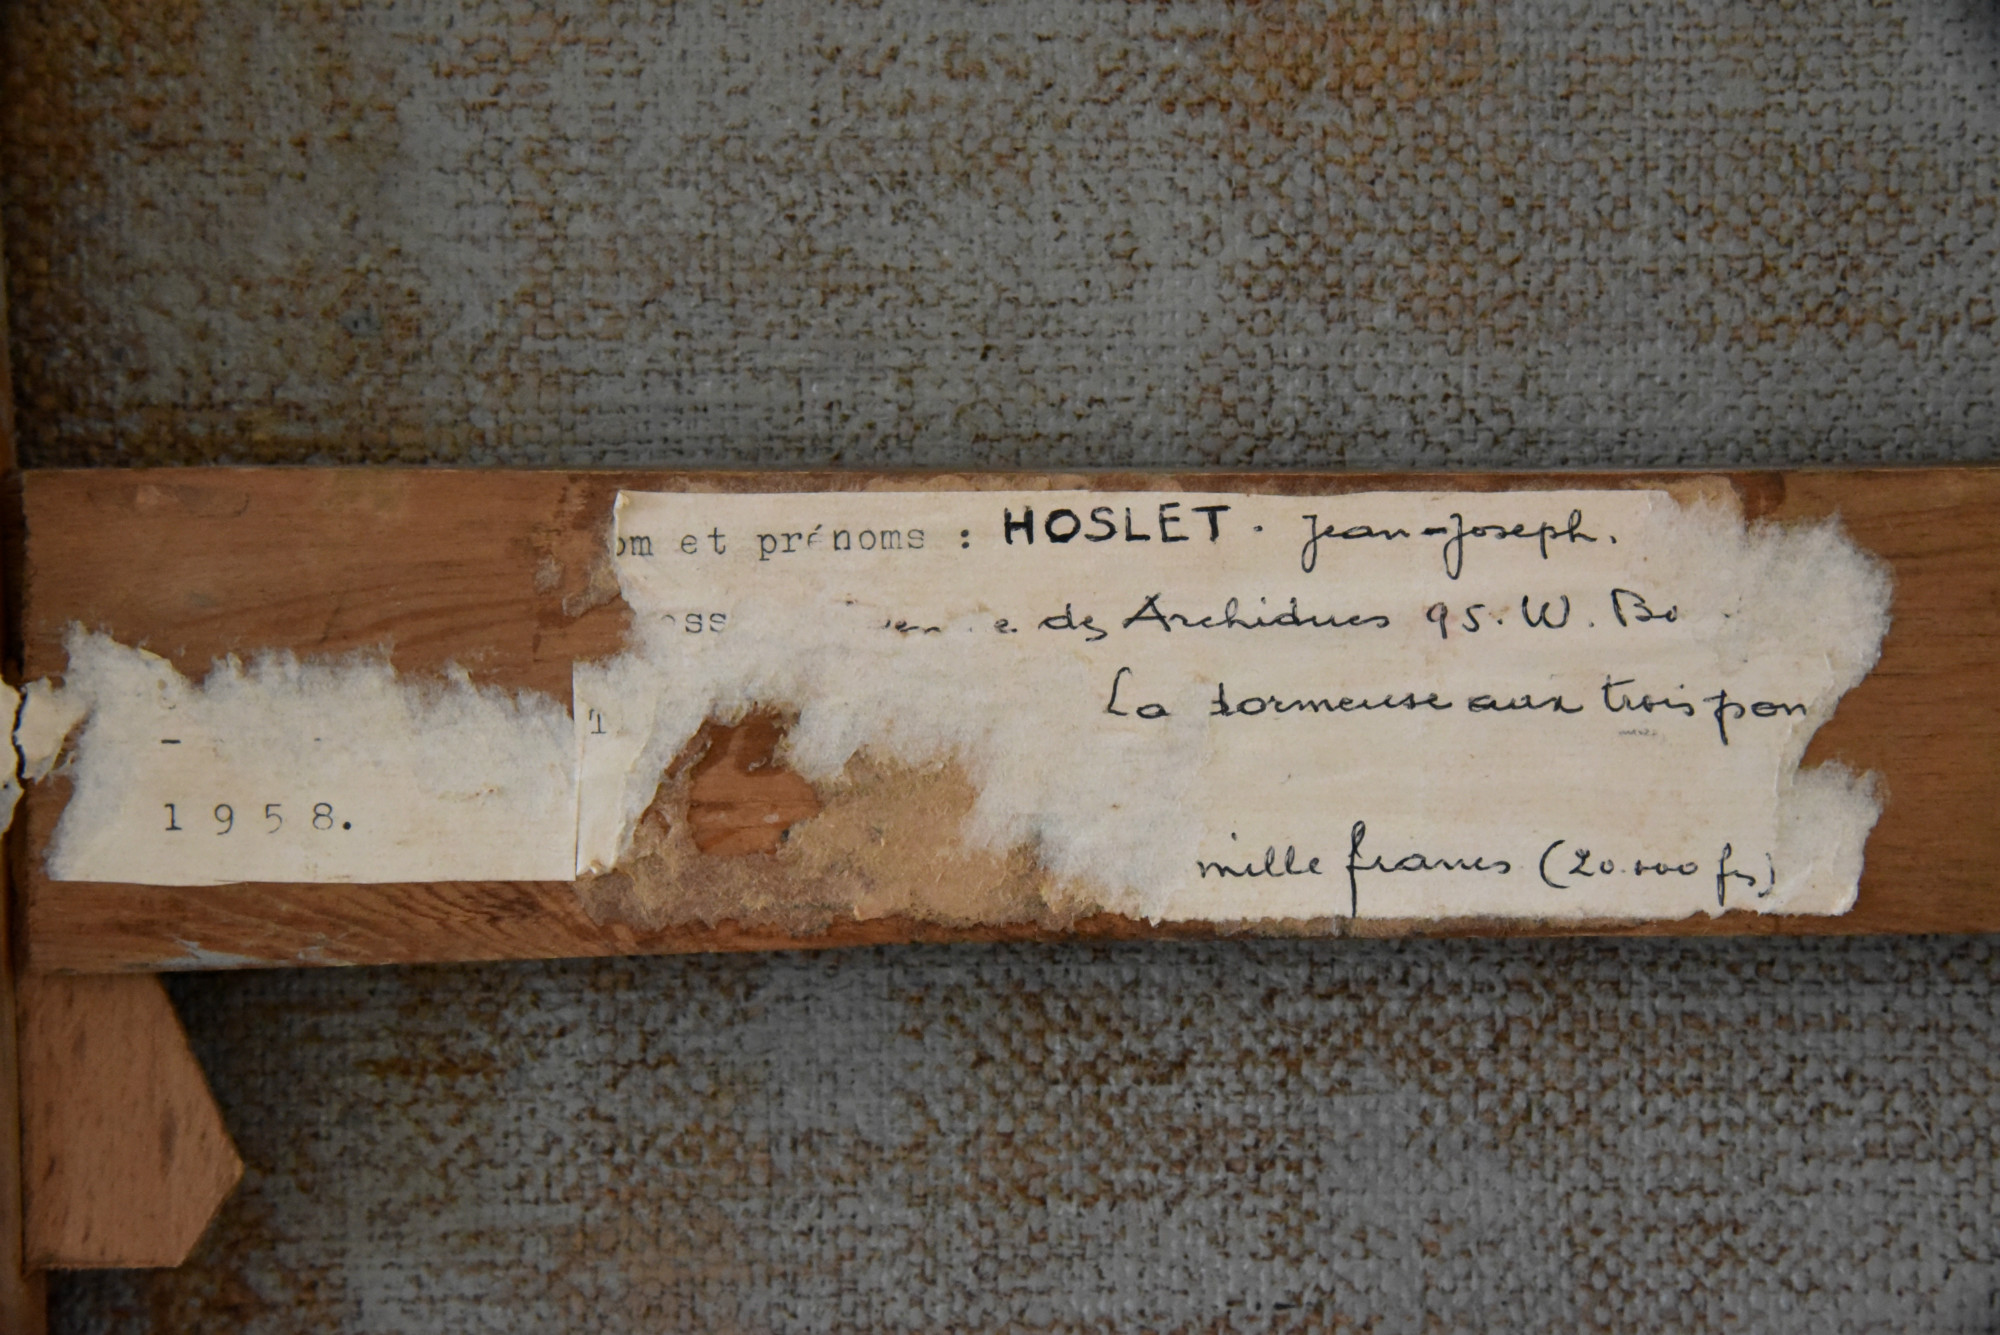 om et prénoms : HOSLET. Jean-Joseph.
ess e des Archiducs 95. W. Bo
T La dormeuse aux trois pom
-
1958.
mille francs (20.000 frs)